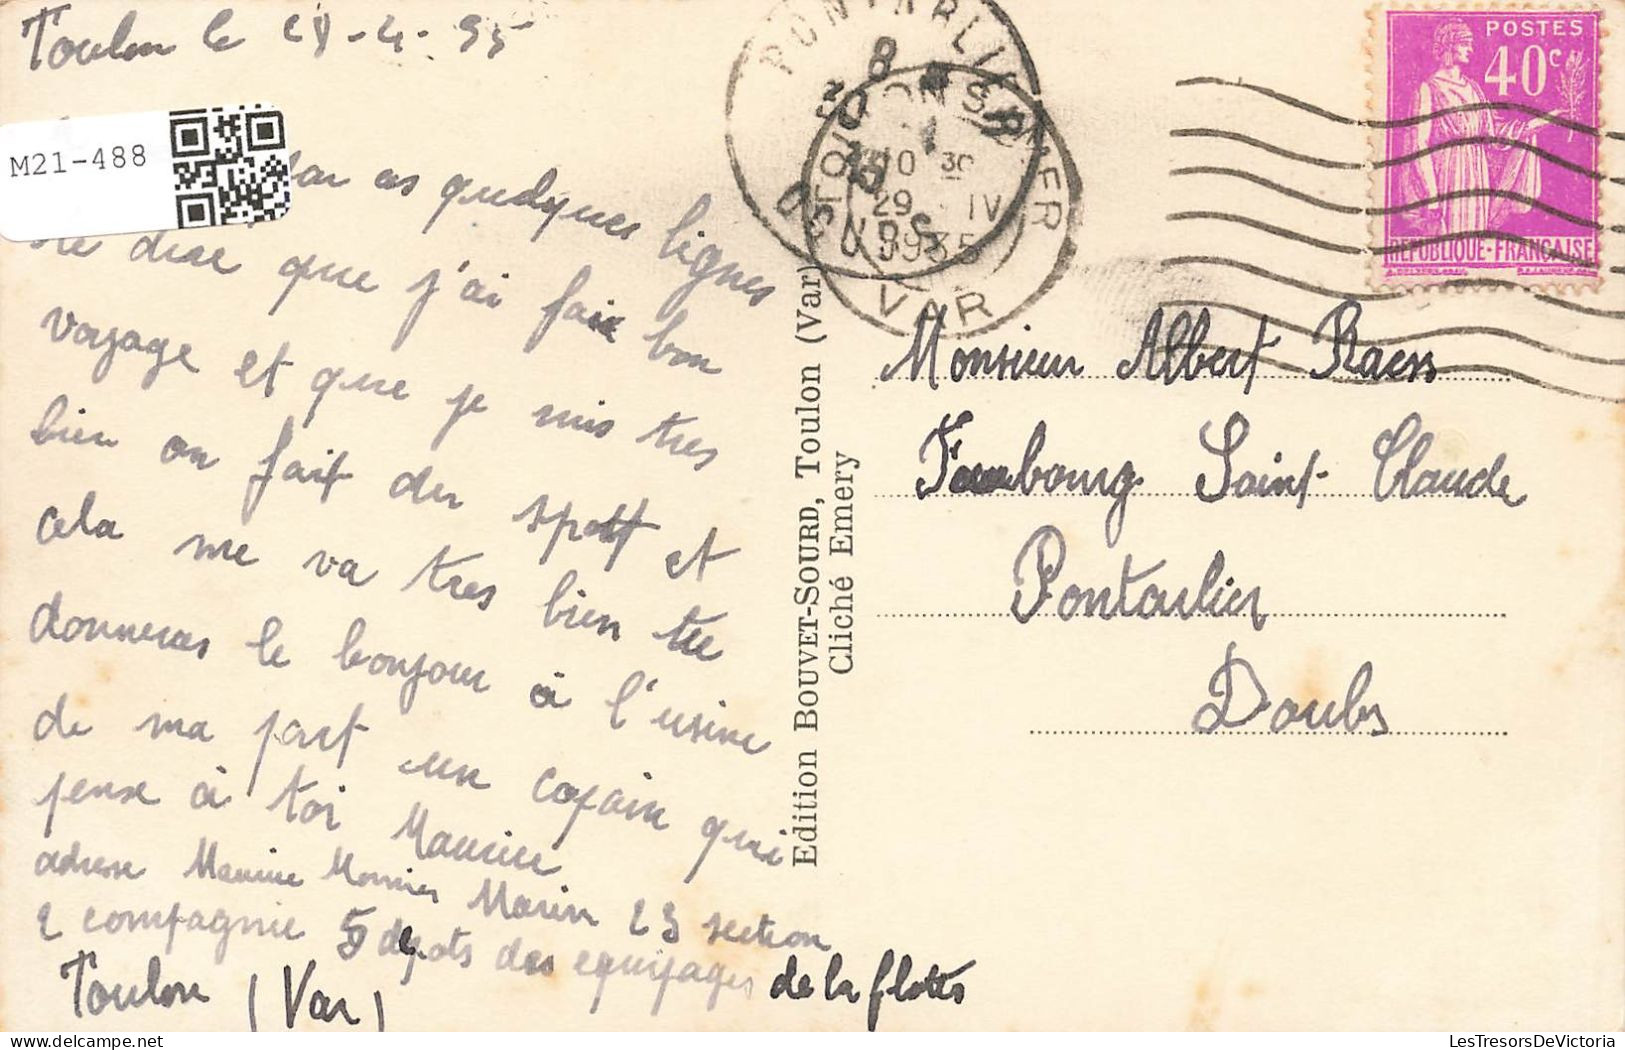 Toulon le 28-4-35
M21-488
par ces quelques lignes
te dire que j'ai fait bon
voyage et que je mis tres
bien on fait des sport et
cela me va tres bien tu
donneras le bonjour à l'usine
de ma part un copain qui
pense à toi Maurice
adresse Maurice Monnier Marin 23 section
2 compagnie 5 depots des equipages de la flottes
Toulon (Var)
Edition BOUVET-SOURD, Toulon (Var)
Cliché Emery
PONTARLIER
DOUBS
TOULON S MER
10 30
29 IV
1935
VAR
POSTES
40c
REPUBLIQUE-FRANÇAISE
Monsieur Albert Raess
Faubourg Saint-Claude
Pontarlier
Doubs
LesTresorsDeVictoria